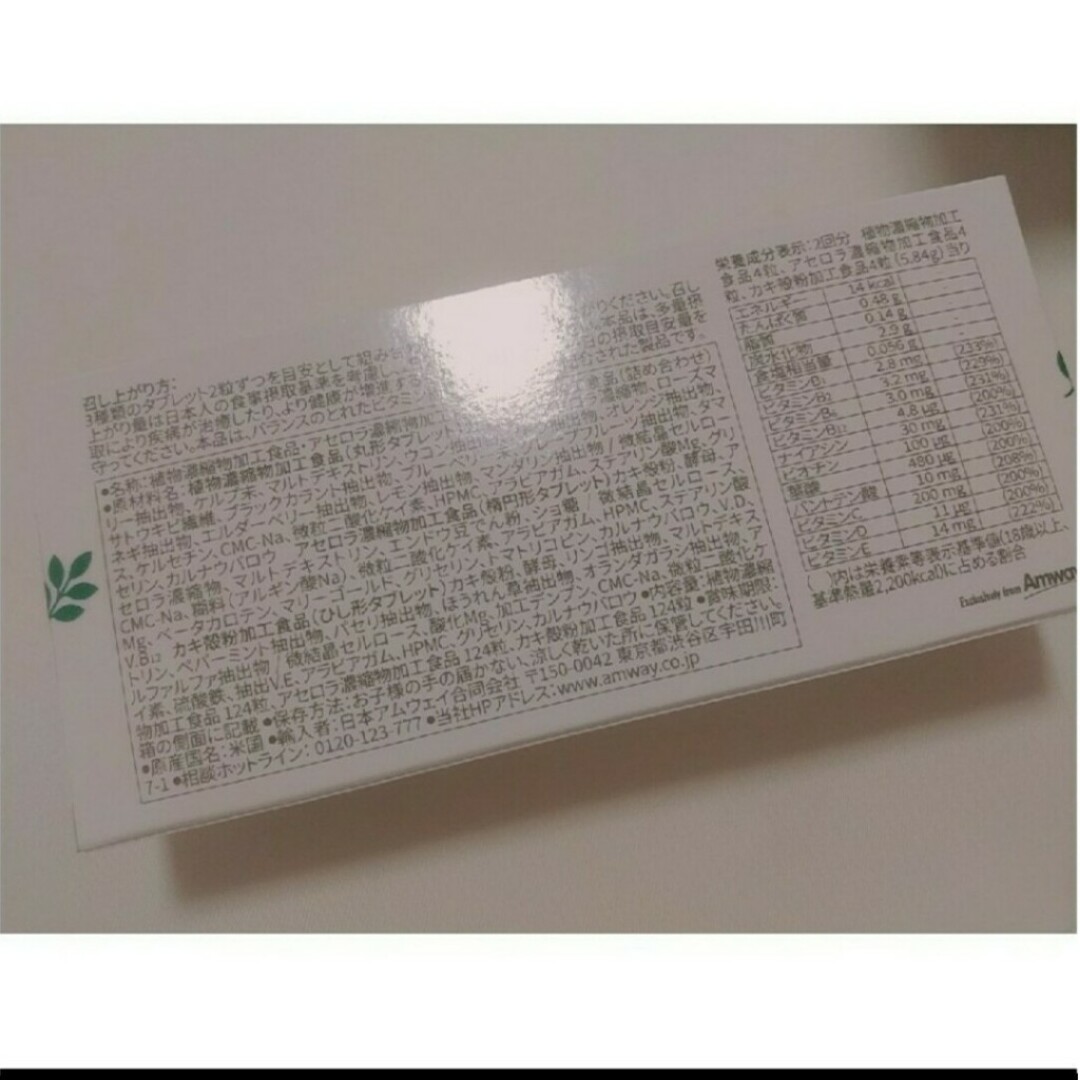 召し上がり方:
3種類のタブレット2粒ずつを目安として組み合 りください。召し
上がり量は日本人の食事摂取基準を考慮し 本品は、多量摂
取により疾病が治癒したり、より健康が増進する 日の摂取目安量を
守ってください。本品は、バランスのとれたビタミ された製品です。
●名称:植物濃縮物加工食品・アセロラ濃縮物加 食品(詰め合わせ)
●原材料名:植物濃縮物加工食品(丸形タブレット 濃縮物、ローズマ
リー抽出物、ケルプ末、マルトデキストリン、ウコン抽出 オレンジ抽出物、
サトウキビ繊維、ブラックカラント抽出物、ブルーベリー グレープフルーツ抽出物、タマ
ネギ抽出物、エルダーベリー抽出物、レモン抽出物、マンダリン抽出物/微結晶セルロー
ス、ケルセチン、CMC-Na、微粒二酸化ケイ素、HPMC、アラビアガム、ステアリン酸Mg、グリ
セリン、カルナウバロウ アセロラ濃縮物加工食品(楕円形タブレット)カキ殻粉、酵母、ア
セロラ濃縮物、マルトデキストリン、エンドウ豆でん粉、ショ糖/微結晶セルロース、
CMC-Na、糊料(アルギン酸Na)、微粒二酸化ケイ素、アラビアガム、HPMC、ステアリン酸
Mg、ベータカロテン、マリーゴールド、グリセリン、トマトリコピン、カルナウバロウ、V.D、
V.B₁₂ カキ殻粉加工食品(ひし形タブレット)カキ殻粉、酵母、リンゴ抽出物、マルトデキス
トリン、ペパーミント抽出物、パセリ抽出物、ほうれん草抽出物、オランダガラシ抽出物、ア
ルファルファ抽出物/微結晶セルロース、酸化Mg、加工デンプン、CMC-Na、微粒二酸化ケ
イ素、硫酸鉄、抽出V.E、アラビアガム、HPMC、グリセリン、カルナウバロウ ●内容量:植物濃縮
物加工食品 124粒、アセロラ濃縮物加工食品 124粒、カキ殻粉加工食品 124粒 ●賞味期限:
箱の側面に記載 ●保存方法:お子様の手の届かない、涼しく乾いた所に保管してください。
●原産国名:米国 ●輸入者:日本アムウェイ合同会社 〒150-0042 東京都渋谷区宇田川町
7-1 ●相談ホットライン: 0120-123-777 ●当社HPアドレス:www.amway.co.jp
栄養成分表示:2回分 植物濃縮物加工
食品4粒、アセロラ濃縮物加工食品4
粒、カキ殻粉加工食品4粒(5.84g)当り
エネルギー 14 kcal
たんぱく質 0.48 g
脂質 0.14 g
炭水化物 2.9 g
食塩相当量 0.056 g
ビタミンB₁ 2.8 mg (233%)
ビタミンB₂ 3.2 mg (229%)
ビタミンB₆ 3.0 mg (231%)
ビタミンB₁₂ 4.8 μg (200%)
ナイアシン 30 mg (231%)
ビオチン 100 μg (200%)
葉酸 480 μg (200%)
パントテン酸 10 mg (208%)
ビタミンC 200 mg (200%)
ビタミンD 11 μg (200%)
ビタミンE 14 mg (222%)
( )内は栄養素等表示基準値(18歳以上、
基準熱量2,200kcal)に占める割合
Exclusively from Amway